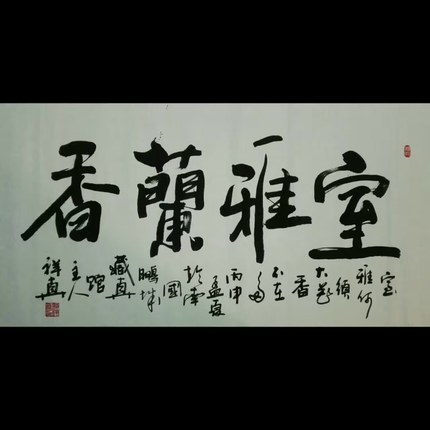 室雅蘭香
室雅何須大花香不在多丙申孟夏於南國鵬城藏真舘主人祥真